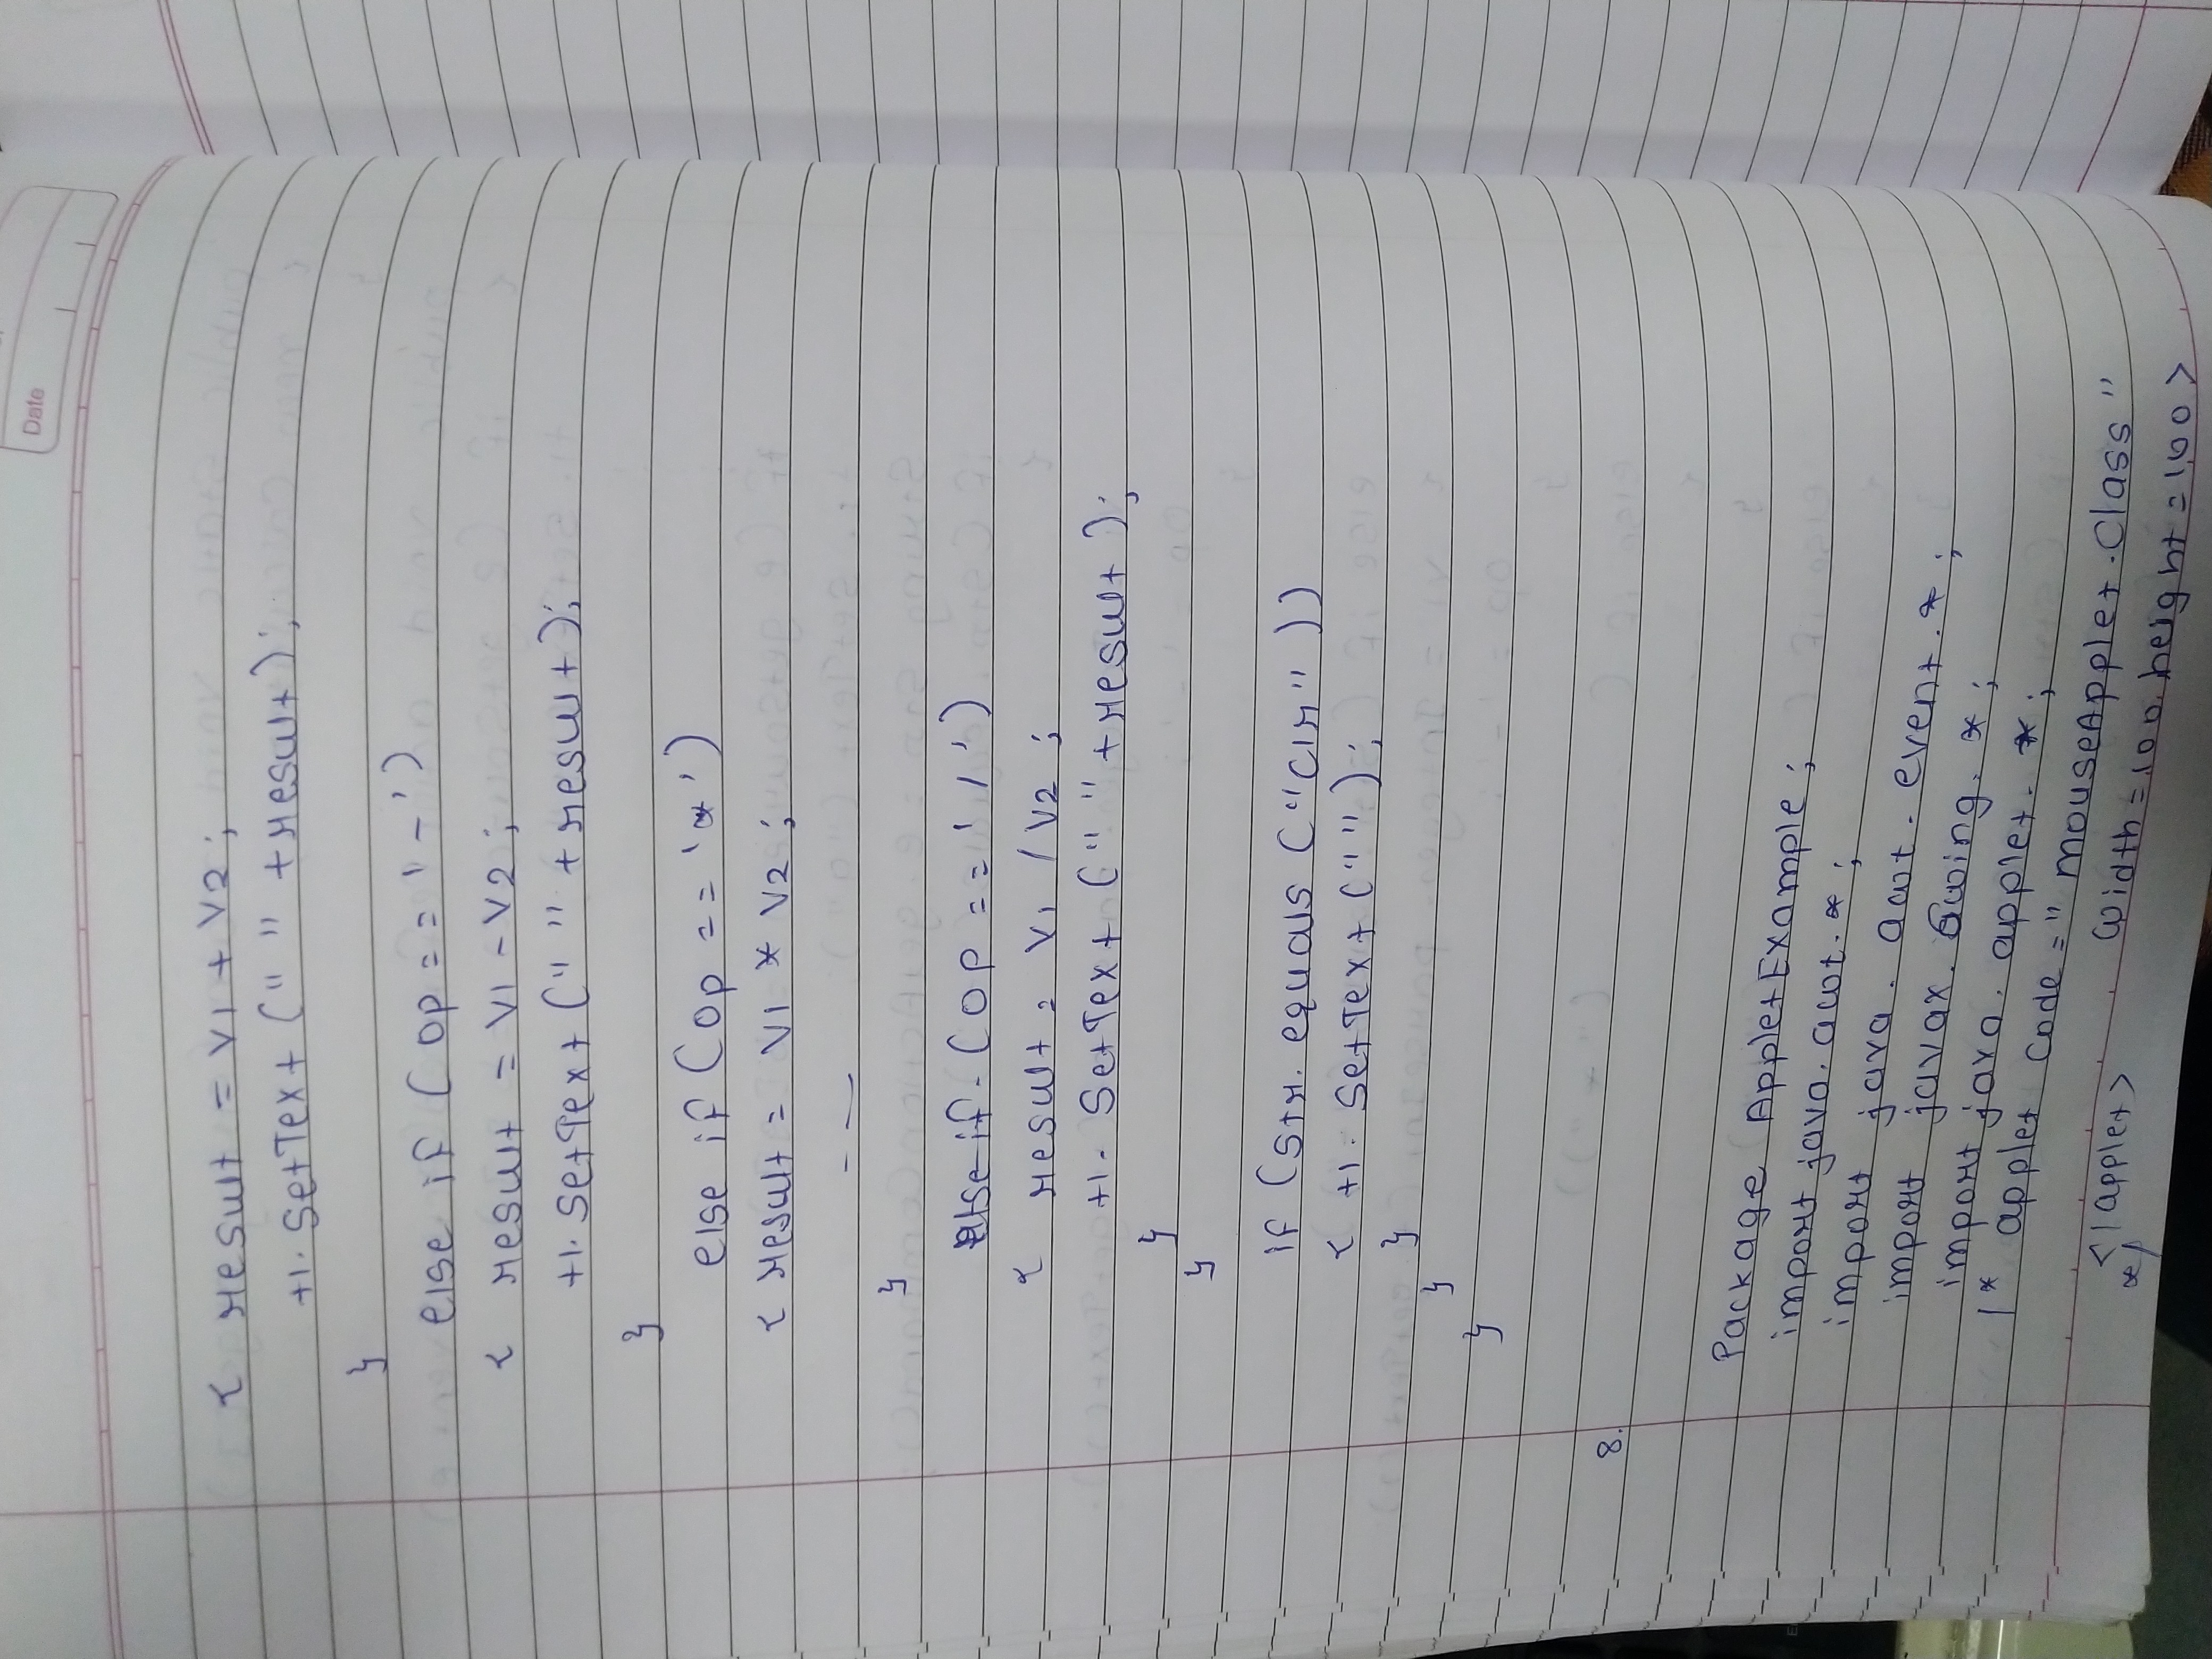 Date
{ result = v1 + v2;
t1. SetText (" " + result);
}
else if (op == '-')
{ result = v1 - v2;
t1. SetText (" " + result);
}
else if (op == '*')
{ result = v1 * v2;
- —
}
else if (op == '/')
{ result = v1 / v2;
t1. SetText (" " + result);
}
}
if (str. equals ("clr"))
{ t1. SetText ("");
}
}
}
8.
Package AppletExample;
import java. awt. *;
import java. awt. event. *;
import javax. Swing. *;
import java. applet. *;
/* applet code = "mouseApplet.Class"
width = 100, height = 100 >
</applet>
*/